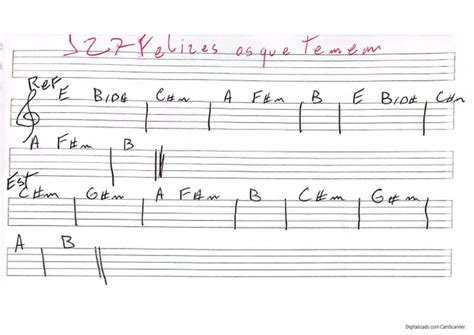 S 127 Felizes os que temem
Ref
E B/D# C#m A F#m B E B/D# C#m
A F#m B
Est
C#m G#m A F#m B C#m G#m
A B
Digitalizado com CamScanner